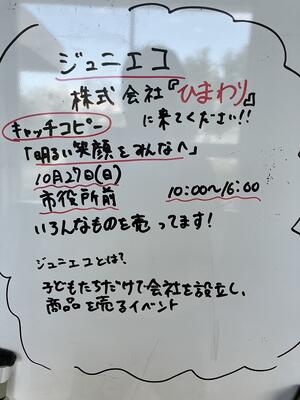 ジュニエコ
株式会社『ひまわり』
に来てください!!
キャッチコピー
「明るい笑顔をみんなへ」
10月27日(日)
市役所前 10:00〜16:00
いろんなものを売ってます!
ジュニエコとは?
子どもたちだけで会社を設立し、
商品を売るイベント